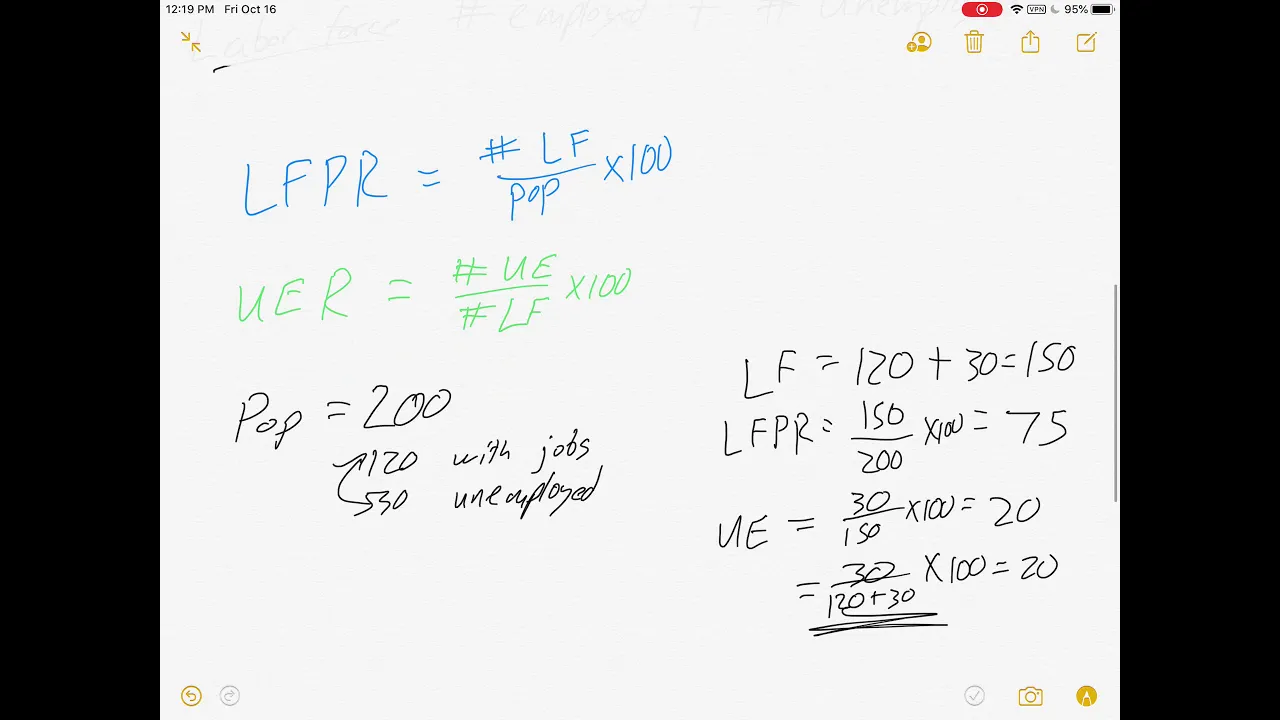 12:19 PM Fri Oct 16
VPN 95%
Labor force # employed + # unemploy
LFPR = # LF / pop x100
UER = # UE / # LF x100
Pop = 200
120 with jobs
30 unemployed
LF = 120 + 30 = 150
LFPR = 150 / 200 x100 = 75
UE = 30 / 150 x100 = 20
= 30 / 120+30 x100 = 20